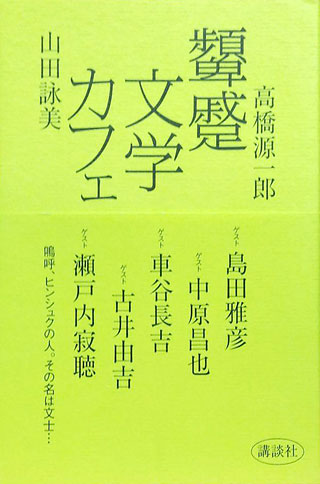 高橋源一郎
顰蹙
文学
カフェ
山田詠美
ゲスト 島田雅彦
ゲスト 中原昌也
ゲスト 車谷長吉
ゲスト 古井由吉
ゲスト 瀬戸内寂聴
嗚呼、ヒンシュクの人。その名は文士…
講談社